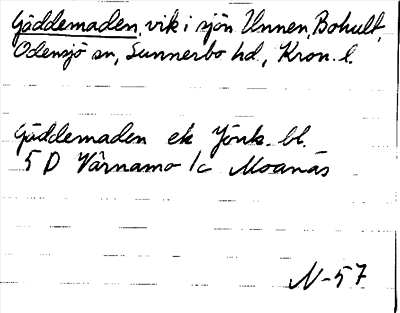 Gäddemaden, vik i sjön Unnen, Bohult,
Odensjö sn, Sunnerbo hd., Kron. l.
Gäddemaden ek Jönk. bl.
5 D Värnamo /c Moanäs
N-57